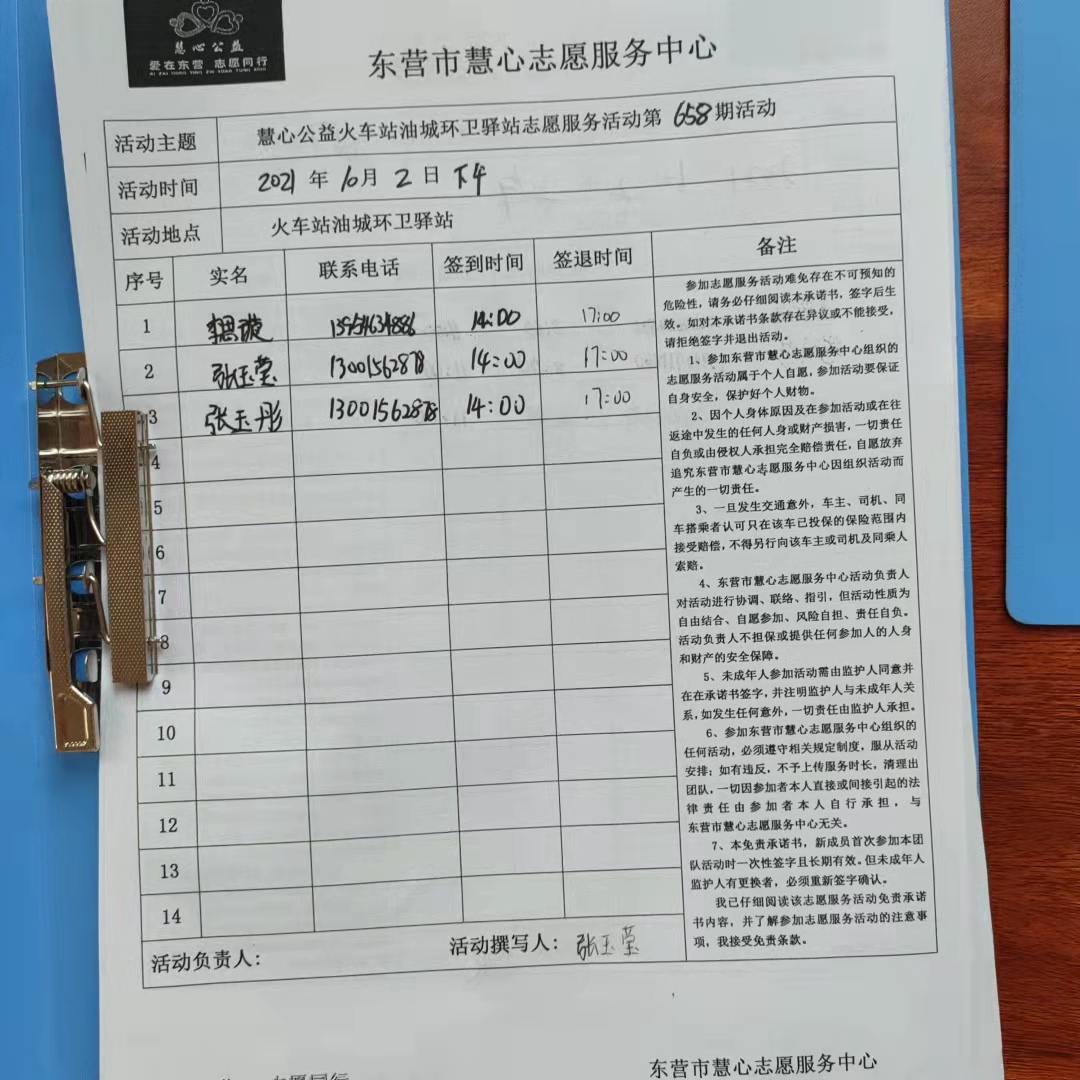 慧心公益
爱在东营 志愿同行
东营市慧心志愿服务中心
活动主题 慧心公益火车站油城环卫驿站志愿服务活动第658期活动
活动时间 2021年10月2日下午
活动地点 火车站油城环卫驿站
序号 实名 联系电话 签到时间 签退时间 备注
1 14:00 17:00
2 张玉莹 13001562878 14:00 17:00
3 张玉彤 13001562878 14:00 17:00
4
5
6
7
8
9
10
11
12
13
14
参加志愿服务活动难免存在不可预知的
危险性，请务必仔细阅读本承诺书，签字后生
效。如对本承诺书条款存在异议或不能接受，
请拒绝签字并退出活动。
1、参加东营市慧心志愿服务中心组织的
志愿服务活动属于个人自愿，参加活动要保证
自身安全，保护好个人财物。
2、因个人身体原因及在参加活动或在往
返途中发生的任何人身或财产损害，一切责任
自负或由侵权人承担完全赔偿责任，自愿放弃
追究东营市慧心志愿服务中心因组织活动而
产生的一切责任。
3、一旦发生交通意外，车主、司机、同
车搭乘者认可只在该车已投保的保险范围内
接受赔偿，不得另行向该车主或司机及同乘人
索赔。
4、东营市慧心志愿服务中心活动负责人
对活动进行协调、联络、指引，但活动性质为
自由结合、自愿参加、风险自担、责任自负。
活动负责人不担保或提供任何参加人的人身
和财产的安全保障。
5、未成年人参加活动需由监护人同意并
在在承诺书签字，并注明监护人与未成年人关
系，如发生任何意外，一切责任由监护人承担。
6、参加东营市慧心志愿服务中心组织的
任何活动，必须遵守相关规定制度，服从活动
安排；如有违反，不予上传服务时长，清理出
团队，一切因参加者本人直接或间接引起的法
律责任由参加者本人自行承担，与
东营市慧心志愿服务中心无关。
7、本免责承诺书，新成员首次参加本团
队活动时一次性签字且长期有效。但未成年人
监护人有更换者，必须重新签字确认。
我已仔细阅读该志愿服务活动免责承诺
书内容，并了解参加志愿服务活动的注意事
项，我接受免责条款。
活动负责人： 活动撰写人：张玉莹
东营市慧心志愿服务中心